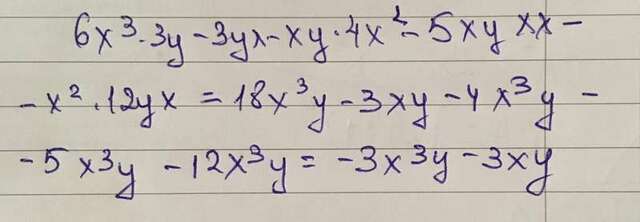 6x³·3y - 3yx - xy·4x² - 5xyxx -
- x²·12yx = 18x³y - 3xy - 4x³y -
- 5x³y - 12x³y = -3x³y - 3xy